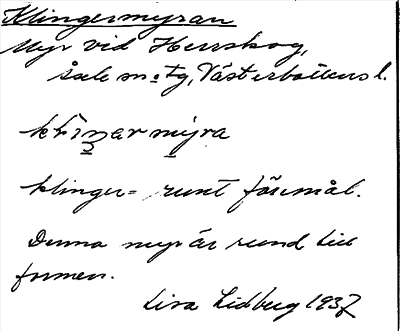 Klingermyran
Myr vid Herrskog,
Åsele sn o tg, Västerbottens l.
klinger = runt föremål.
Denna myr är rund till
formen.
Lisa Lidberg 1937